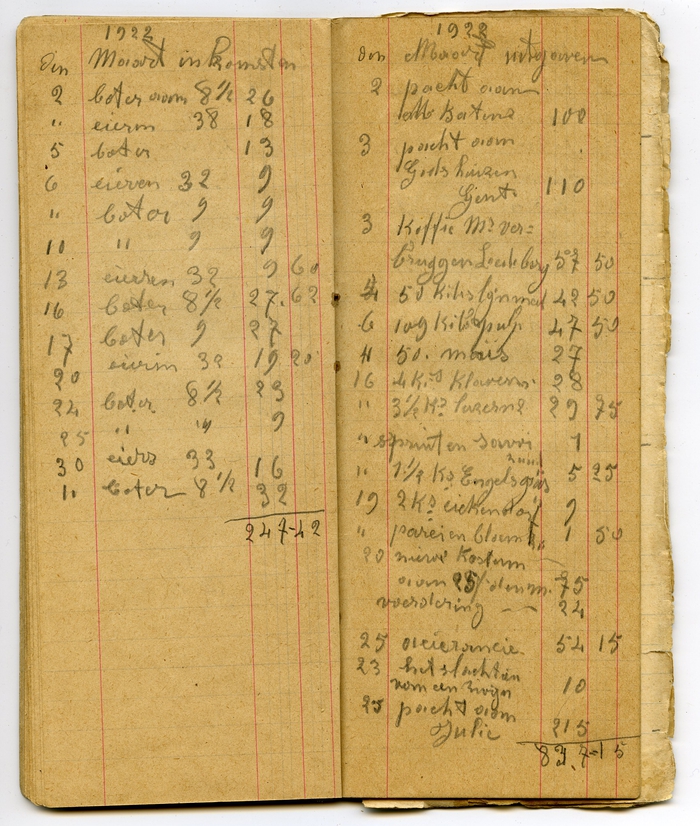 1922
den Maart inkomsten
2 boter aan 8 1/2 26
" eieren 38 18
5 boter 13
6 eieren 32 9
" boter 9 9
10 " 9 9
13 eieren 32 9 60
16 boter 8 1/2 27.62
17 boter 9 27
20 eieren 32 19 20
24 boter 8 1/2 23
25 " " 9
30 eiers 33 16
" boter 8 1/2 32
247-42
1922
den Maart uitgaven
2 pacht aan
100
3 pacht aan
Godshuizen
Gent 110
3 Koffie Mr Ver=
bruggen Ledeberg 57 50
4 50 Kilos lijnmeel 42 50
6 109 Kilo pulp 47 50
11 50. maïs 27
16 4 Kos Klavern 28
" 3 1/2 Ks luzerne 29 75
" sprinten savooi 1
" 1 1/2 Ks Engels gras 5 25
19 2 Ks 9
" pareien bloem 1 50
20 nieuw Kostum
aan 25/ den m. 75
voedering — 24
25 54 15
23 het slachten
van een zwijn 10
25 pacht aan
Julie 215
837-15